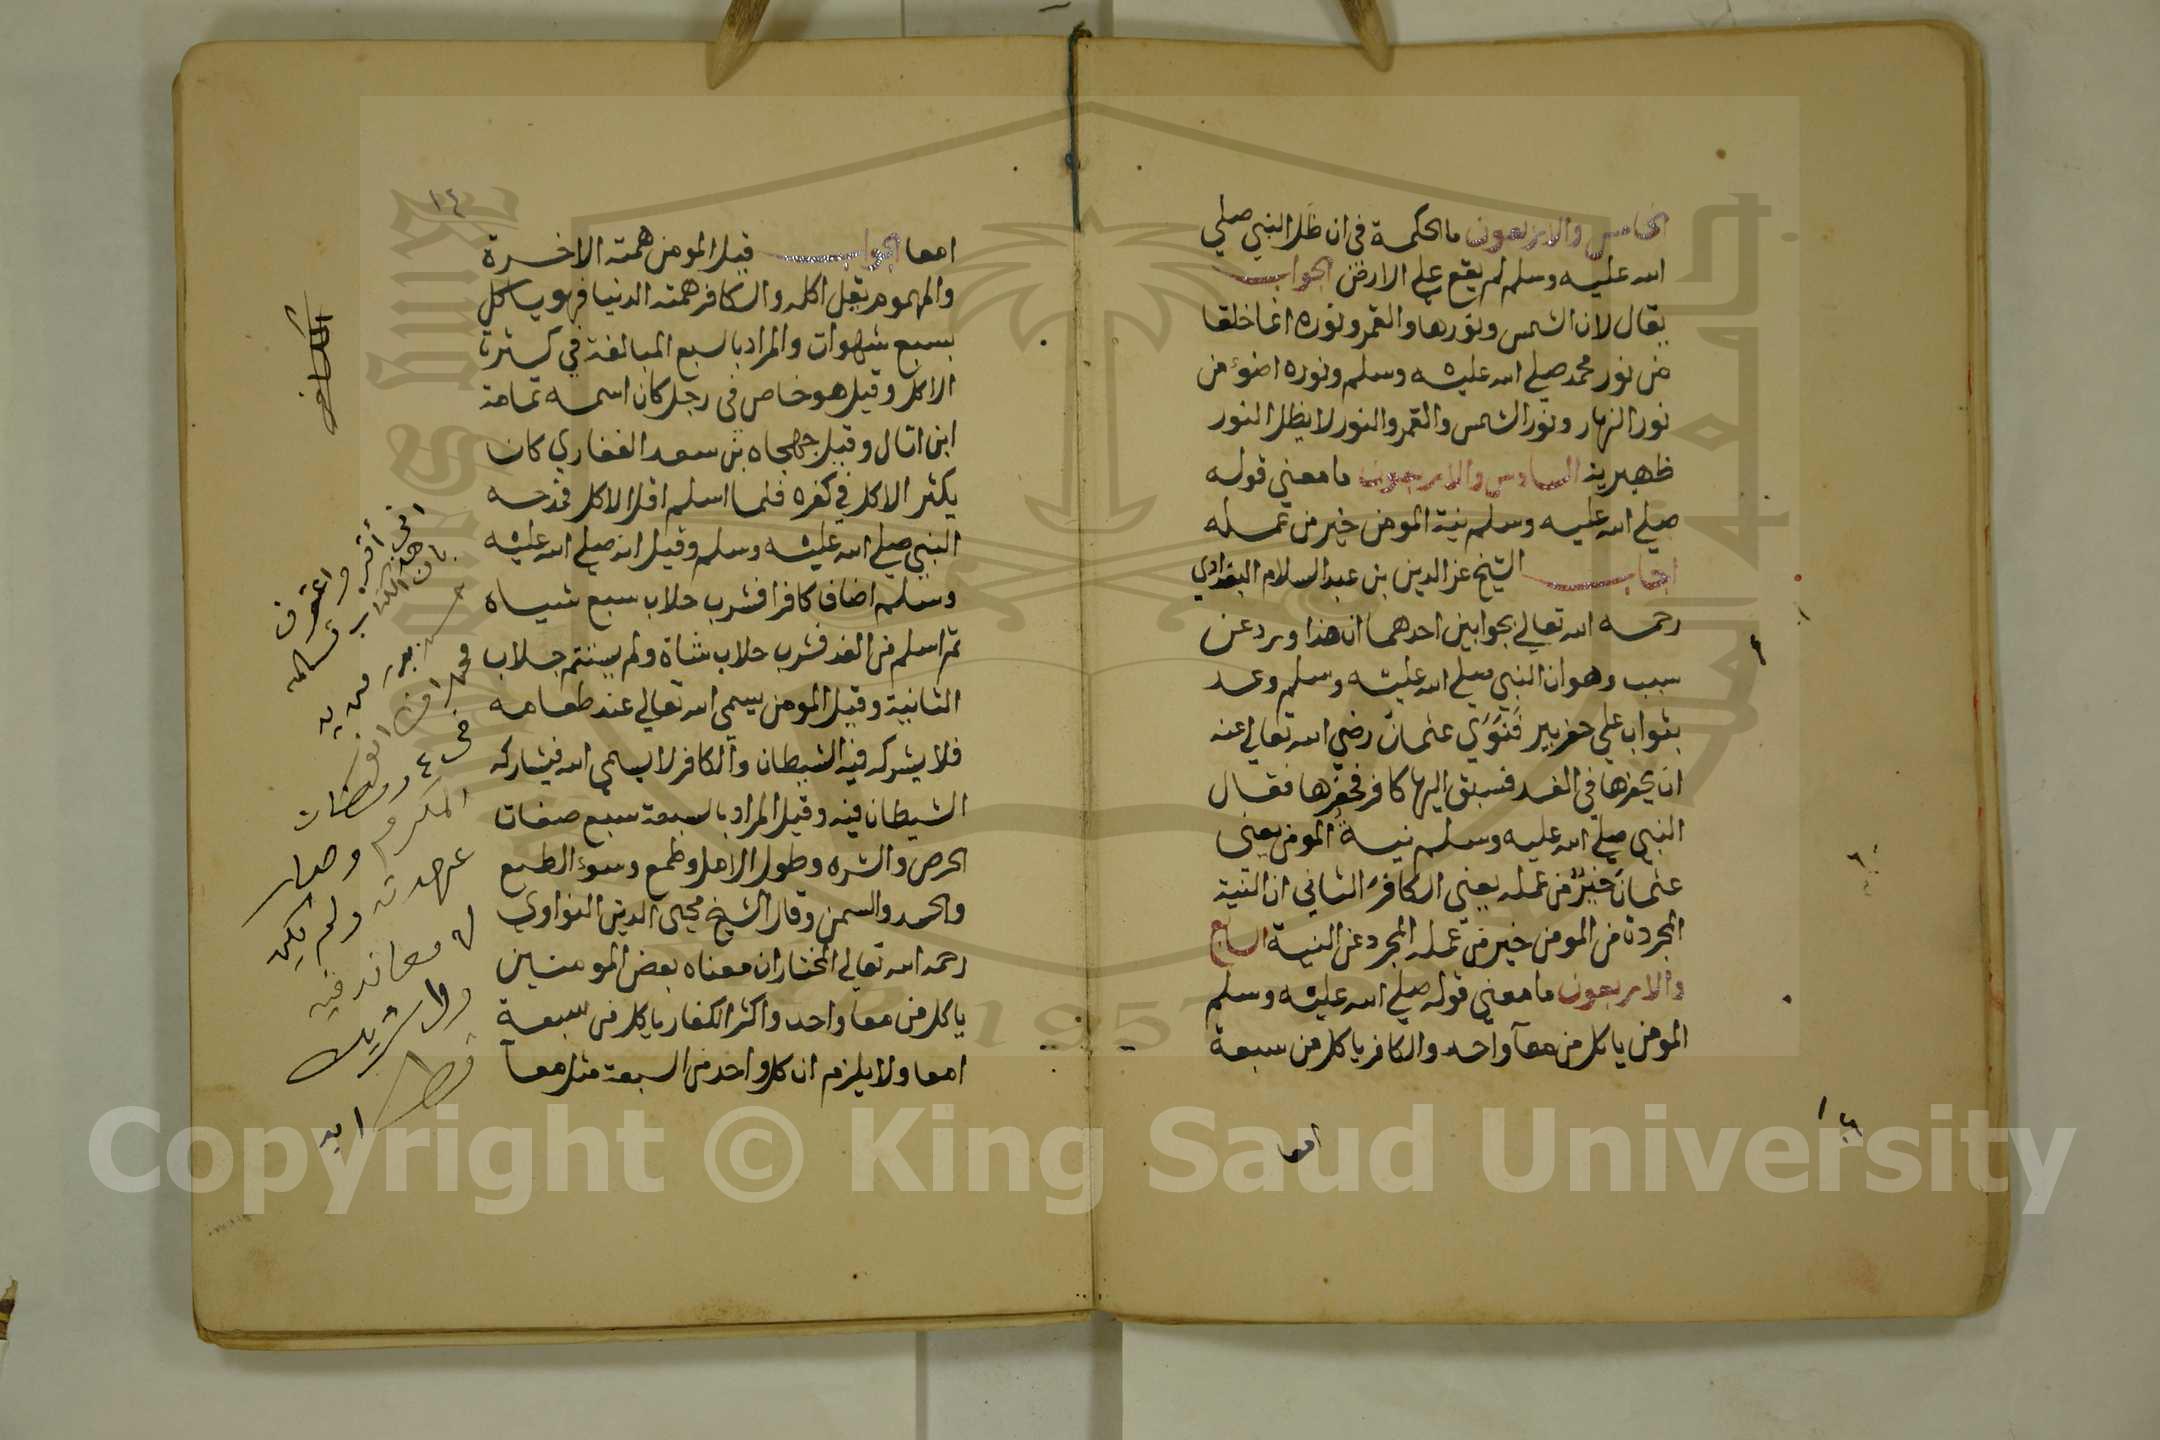 الخامس والاربعون ما الحكمة في ان ظل النبي صلي
الله عليه وسلم لم يقع علي الارض الجواب
يقال لان الشمس ونورها والقمر ونوره انما خلقا
من نور محمد صلي الله عليه وسلم ونوره اضوء من
نور النهار ونور الشمس والقمر والنور لا يظل النور
ظهيرية السادس والاربعون ما معني قوله
صلي الله عليه وسلم نية المومن خير من عمله
اجاب الشيخ عز الدين بن عبد السلام البغدادي
رحمه الله تعالي بجوابين احدهما ان هذا ورد عن
سبب وهو ان النبي صلي الله عليه وسلم وعد
بثواب علي حفر بير فنوي عثمان رضي الله تعالي عنه
ان يحفرها في الغد فسبق اليها كافر فحفرها فقال
النبي صلي الله عليه وسلم نية المومن يعني
عثمان خير من عمله يعني الكافر الثاني ان النية
المجردة من المومن خير من عمله المجرد عن النية السابع
والاربعون ما معني قوله صلي الله عليه وسلم
المومن ياكل من معآ واحد والكافر ياكل من سبعة
امعا
١٤
امعا الجواب قيل المومن همته الاخرة
والمهموم يقل اكله والكافر همته الدنيا فهو ياكل
بسبع شهوات والمراد بالسبع المبالغة في كثرة
الاكل وقيل هو خاص في رجل كان اسمه ثمامة
ابن اثال وقيل جهجاه بن سعد الغفاري كان
يكثر الاكل في كفره فلما اسلم اقل الاكل فمدحه
النبي صلي الله عليه وسلم وقيل انه صلي الله عليه
وسلم اضاف كافرا فشرب حلاب سبع شياه
ثم اسلم من الغد فشرب حلاب شاة ولم يستتم حلاب
الثانية وقيل المومن يسمي الله تعالي عند طعامه
فلا يشركه فيه الشيطان والكافر لا يسمي الله فيشاركه
الشيطان فيه وقيل المراد بالسبعة سبع صفات
الحرص والشره وطول الامل وطمع وسوء الطبع
والحسد والسمن وقال الشيخ محيي الدين النواوي
رحمه الله تعالي المختار ان معناه بعض المومنين
ياكل من معا واحد واكثر الكفار ياكل من سبعة
امعا ولا يلزم ان كل واحد من السبعة مثل معآ
اني أقر واعترف
بان هذ الكتاب
في ٤ رمضان
المكرم وصار
عهدته ولم يكن
له معاند فيه
ولا شريك
قط ابد
Copyright © King Saud University
1957